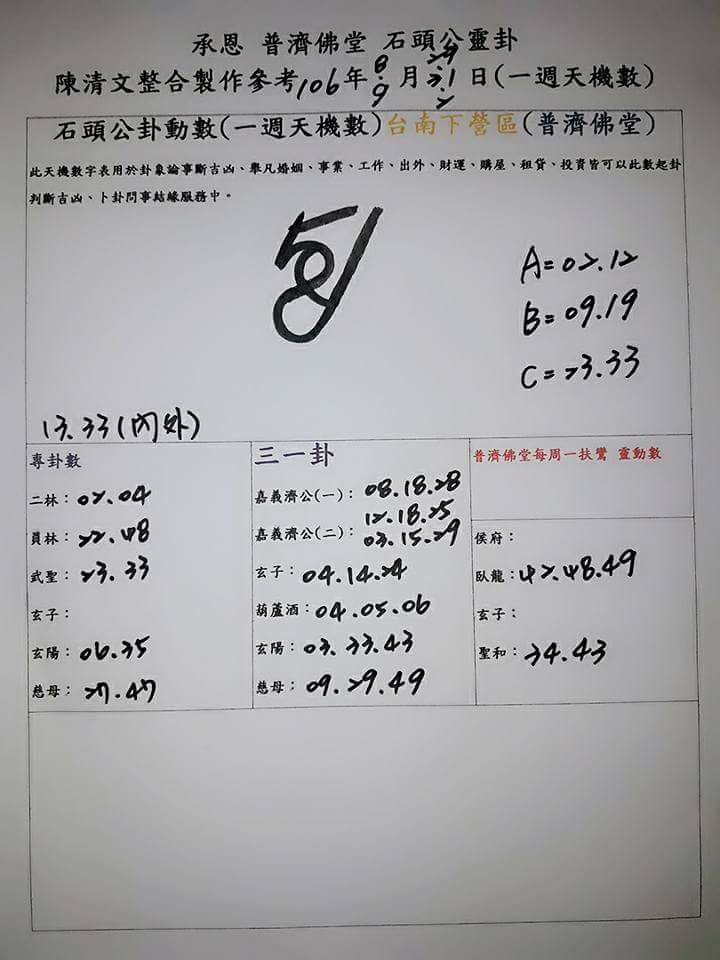 承恩 普濟佛堂 石頭公靈卦
陳清文整合製作參考106年8.9月29.31.2日(一週天機數)
石頭公卦動數(一週天機數)台南下營區(普濟佛堂)
此天機數字表用於卦象論事斷吉凶、舉凡婚姻、事業、工作、出外、財運、購屋、租貸、投資皆可以此數起卦
判斷吉凶、卜卦問事結緣服務中。
A=02.12
B=09.19
C=23.33
13.33(內外)
專卦數
二林：02.04
員林：22.48
武聖：23.33
玄子：
玄陽：06.35
慈母：27.47
三一卦
嘉義濟公(一)：08.18.28
12.18.25
嘉義濟公(二)：03.15.29
玄子：04.14.24
葫蘆酒：04.05.06
玄陽：03.33.43
慈母：09.29.49
普濟佛堂每周一扶鸞 靈動數
侯府：
臥龍：42.48.49
玄子：
聖和：34.43